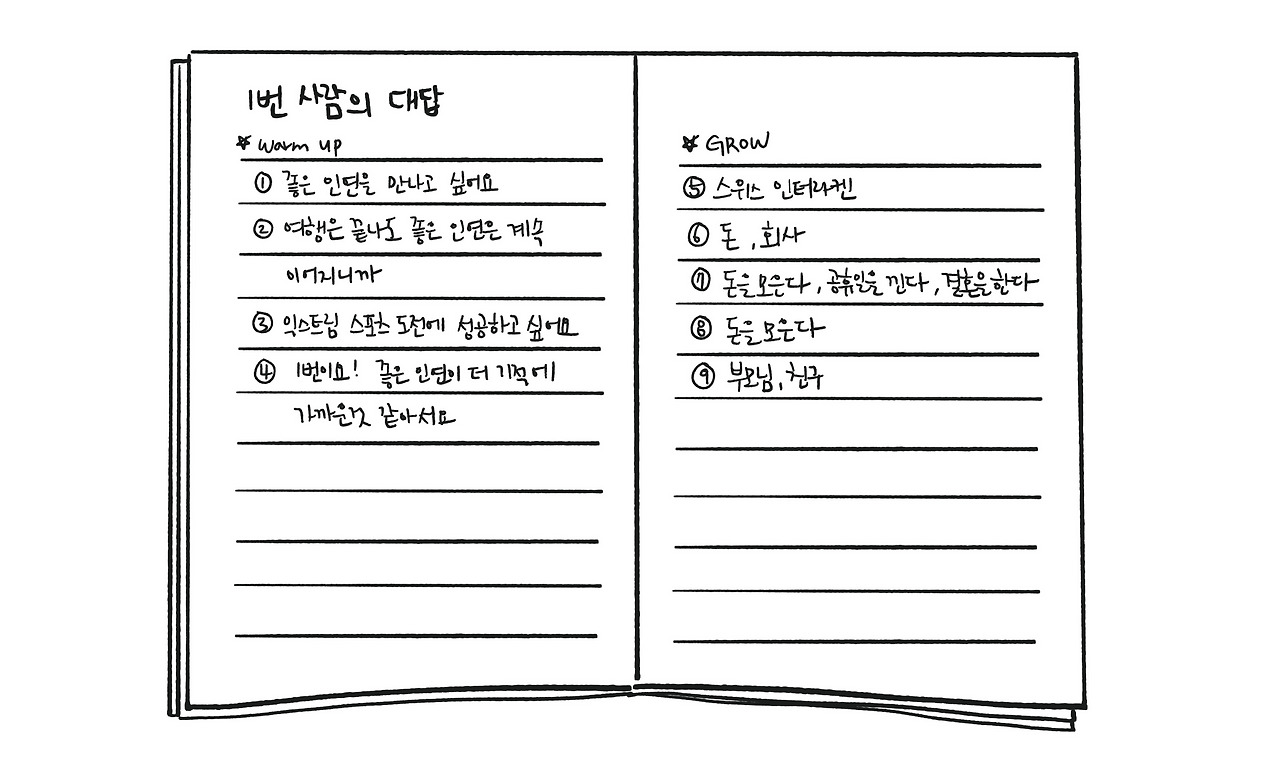 1번 사람의 대답
☆ warm up
① 좋은 인연을 만나고 싶어요
② 여행은 끝나도 좋은 인연은 계속
이어지니까
③ 익스트림 스포츠 도전에 성공하고 싶어요
④ 1번이요! 좋은 인연이 더 기적에
가까운것 같아서요
☆ GROW
⑤ 스위스 인터라켄
⑥ 돈, 회사
⑦ 돈을 모은다, 공휴일을 낀다, 결혼을 한다
⑧ 돈을 모은다
⑨ 부모님, 친구